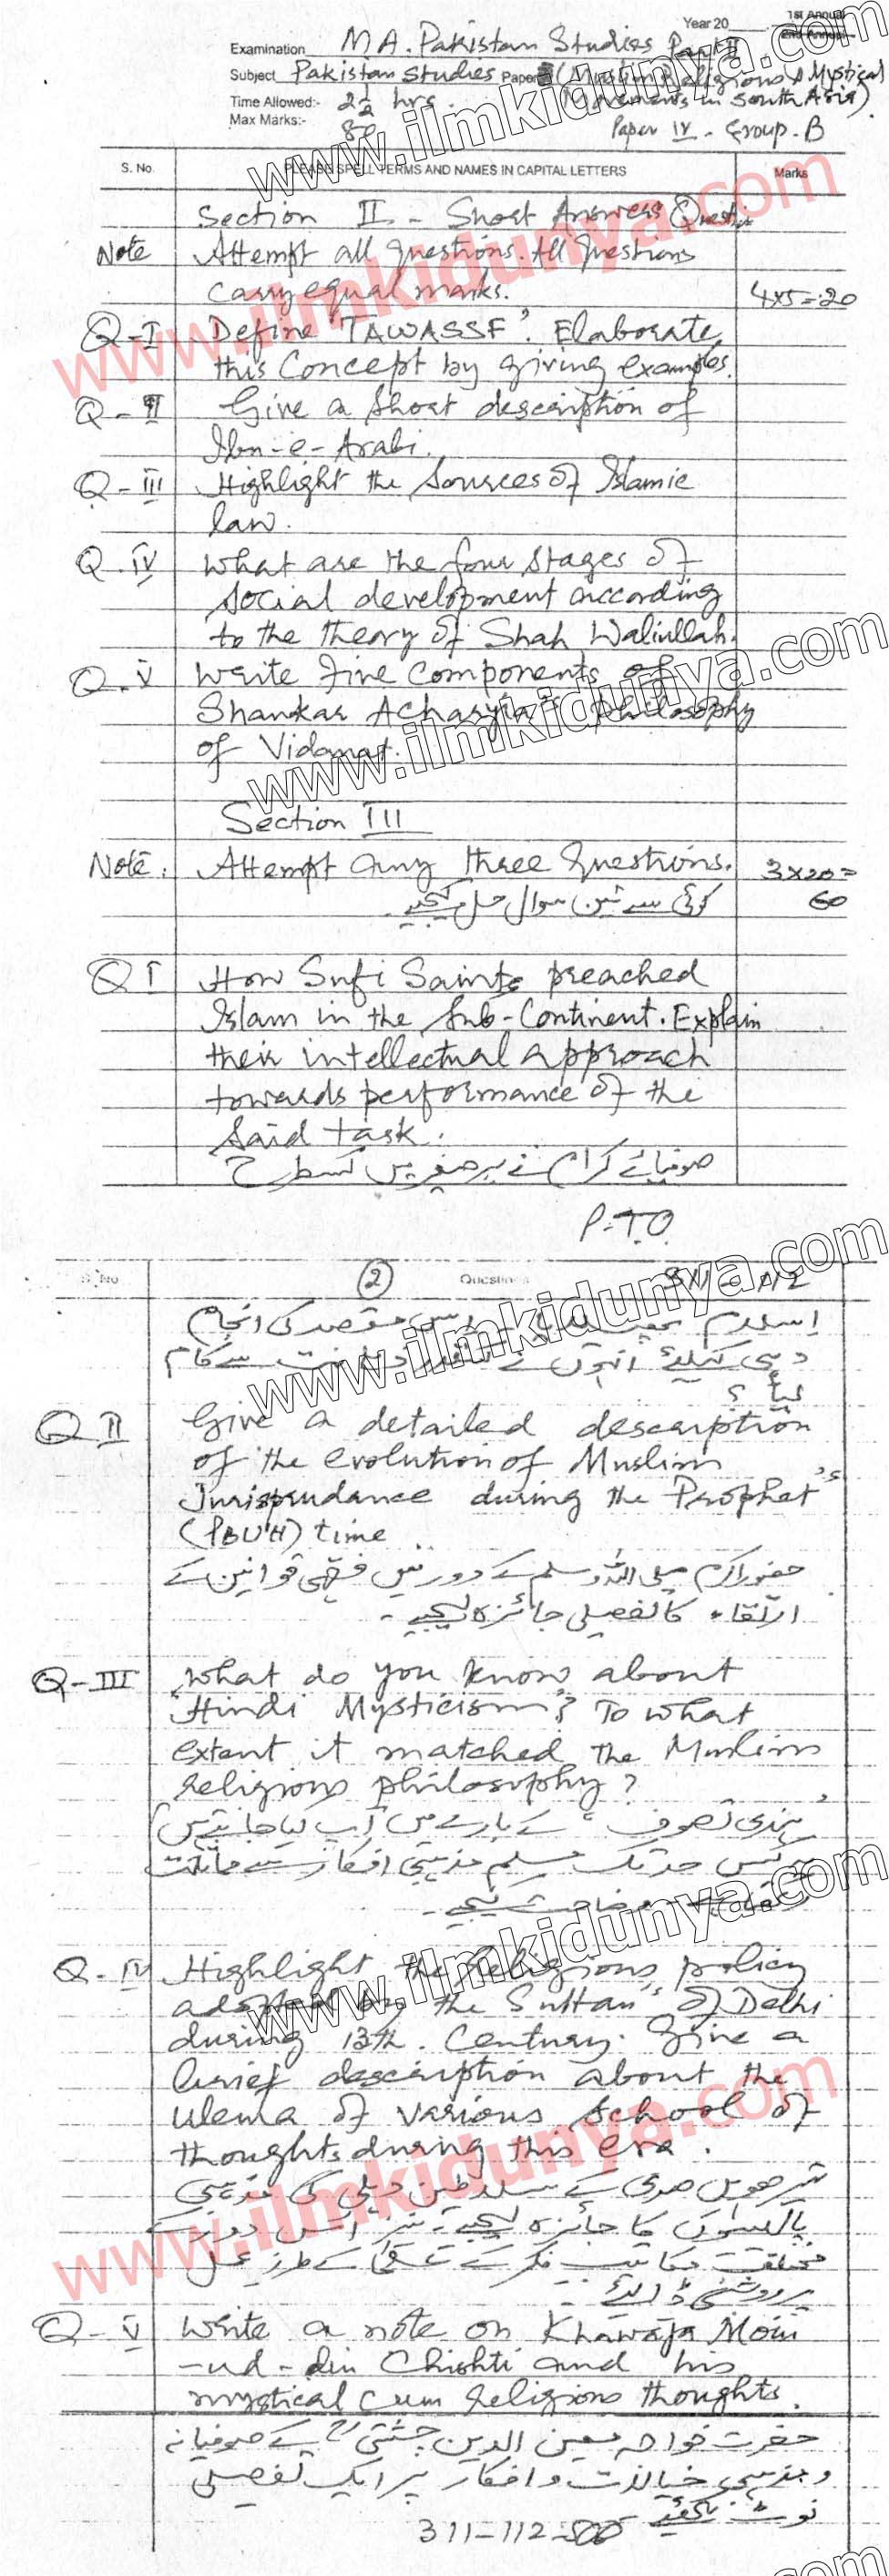 Year 20
1st Annual
2nd Annual
Examination M A. Pakistan Studies Part II
Subject Pakistan Studies Paper (Muslim Religious & Mystical
Time Allowed:- 2½ hrs. Movements in South Asia)
Max Marks:- 80 Paper IV - Group-B
S. No. PLEASE SPELL TERMS AND NAMES IN CAPITAL LETTERS Marks
Section II - Short Answers
Note Attempt all Questions. All Questions
carry equal marks. 4x5=20
Q-I Define 'TAWASSF'. Elaborate
this Concept by giving examples.
Q-II Give a short description of
Ibn-e-Arabi.
Q-III Highlight the Sources of Islamic
law.
Q.IV What are the four stages of
social development according
to the theory of Shah Waliullah.
Q.V Write Five Components of
Shankar Acharyia's Philosophy
of Vidamat.
Section III
Note: Attempt any three Questions. 3x20=
کوئی سے تین سوال حل کیجیے۔ 60
Q I How Sufi Saints preached
Islam in the Sub-Continent. Explain
their intellectual approach
towards performance of the
said task.
صوفیائے کرام نے برصغیر میں کسطرح
P.T.O
S. No. 2 Questions
اسلام پھیلایا۔ اس مقصد کی انجام
دہی کیلئے انہوں نے سے کام
لیا؟
Q II Give a detailed description
of the evolution of Muslim
Jurisprudance during the Prophet's
(PBUH) time
حضور اکرم صلی اللہ وسلم کے دور میں فقہی قوانین کے
ارتقاء کا تفصیلی جائزہ لیجیے۔
Q-III What do you know about
'Hindi Mysticism'? To what
extent it matched the Muslim
religious philosophy?
'ہندی تصوف' کے بارے میں آپ کیا جانتے ہیں
یہ کس حد تک مسلم مذہبی افکار سے مماثلت
وضاحت کیجیے۔
Q-IV Highlight the Religious policy
adopted by the Sultan's of Delhi
during 13th. Century. Give a
brief description about the
ulema of various School of
thoughts during this era.
تیرھویں صدی کے سلاطین دہلی کی مذہبی
پالیسیوں کا جائزہ لیجیے۔ نیز اس دور کے
مختلف مکاتیب فکر کے کے طرز عمل
پر روشنی ڈالیے۔
Q-V Write a note on Khawaja Moin
-ud-din Chishti and his
mystical cum religious thoughts.
حضرت خواجہ معین الدین چشتی کے صوفیانہ
و مذہبی خیالات و افکار پر ایک تفصیلی
نوٹ لکھئے
311-112-500
www.ilmkidunya.com
www.ilmkidunya.com
www.ilmkidunya.com
www.ilmkidunya.com
www.ilmkidunya.com
www.ilmkidunya.com